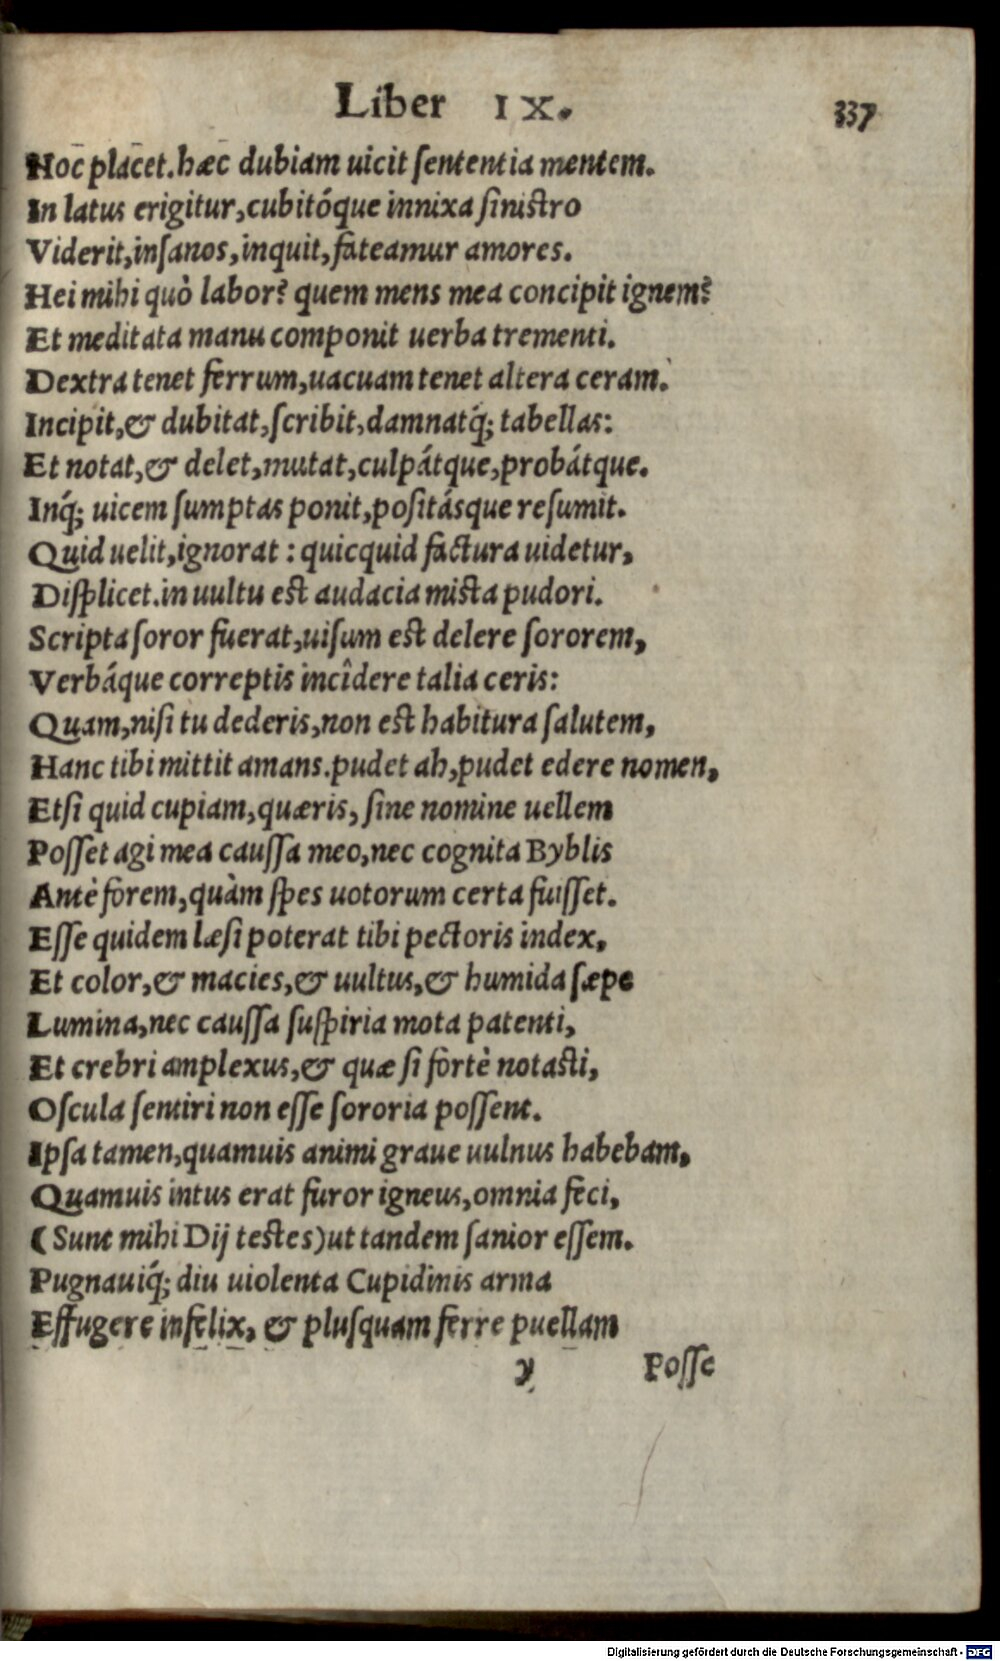 Liber IX. 337
Hoc placet. hæc dubiam uicit sententia mentem.
In latus erigitur, cubitóque innixa sinistro
Viderit, insanos, inquit, fateamur amores.
Hei mihi quò labor? quem mens mea concipit ignem?
Et meditata manu componit uerba trementi.
Dextra tenet ferrum, uacuam tenet altera ceram.
Incipit, & dubitat, scribit, damnatq́; tabellas:
Et notat, & delet, mutat, culpátque, probátque.
Inq́; uicem sumptas ponit, positásque resumit.
Quid uelit, ignorat: quicquid factura uidetur,
Displicet. in uultu est audacia mista pudori.
Scripta soror fuerat, uisum est delere sororem,
Verbáque correptis incîdere talia ceris:
Quam, nisi tu dederis, non est habitura salutem,
Hanc tibi mittit amans. pudet ah, pudet edere nomen,
Etsi quid cupiam, quæris, sine nomine uellem
Posset agi mea caussa meo, nec cognita Byblis
Antè forem, quàm spes uotorum certa fuisset.
Esse quidem læsi poterat tibi pectoris index,
Et color, & macies, & uultus, & humida sæpe
Lumina, nec caussa suspiria mota patenti,
Et crebri amplexus, & quæ si fortè notasti,
Oscula sentiri non esse sororia possent.
Ipsa tamen, quamuis animi graue uulnus habebam,
Quamuis intus erat furor igneus, omnia feci,
(Sunt mihi Dij testes) ut tandem sanior essem.
Pugnauiq́; diu uiolenta Cupidinis arma
Effugere infelix, & plusquam ferre puellam
y Posse
Digitalisierung gefördert durch die Deutsche Forschungsgemeinschaft - DFG